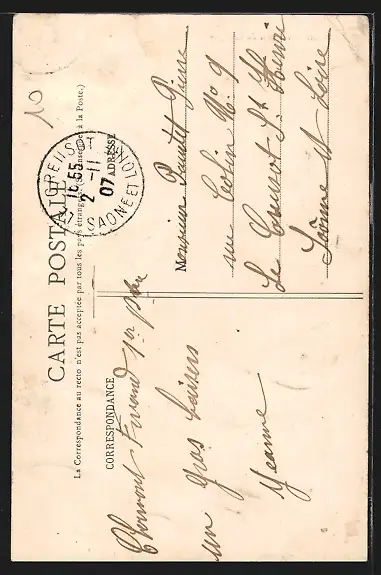 CARTE POSTALE
La Correspondance au recto n'est pas acceptée par tous les pays étrangers (Se renseigner à la Poste.)
CORRESPONDANCE
ADRESSE
10
LE CREUSOT
16 55
2 -11
07
SAONE ET LOIRE
un gros baisers
Yeanne
Monsieur Pierre
rue Colin No 9
Le Creusot St Henri
Saône et Loire